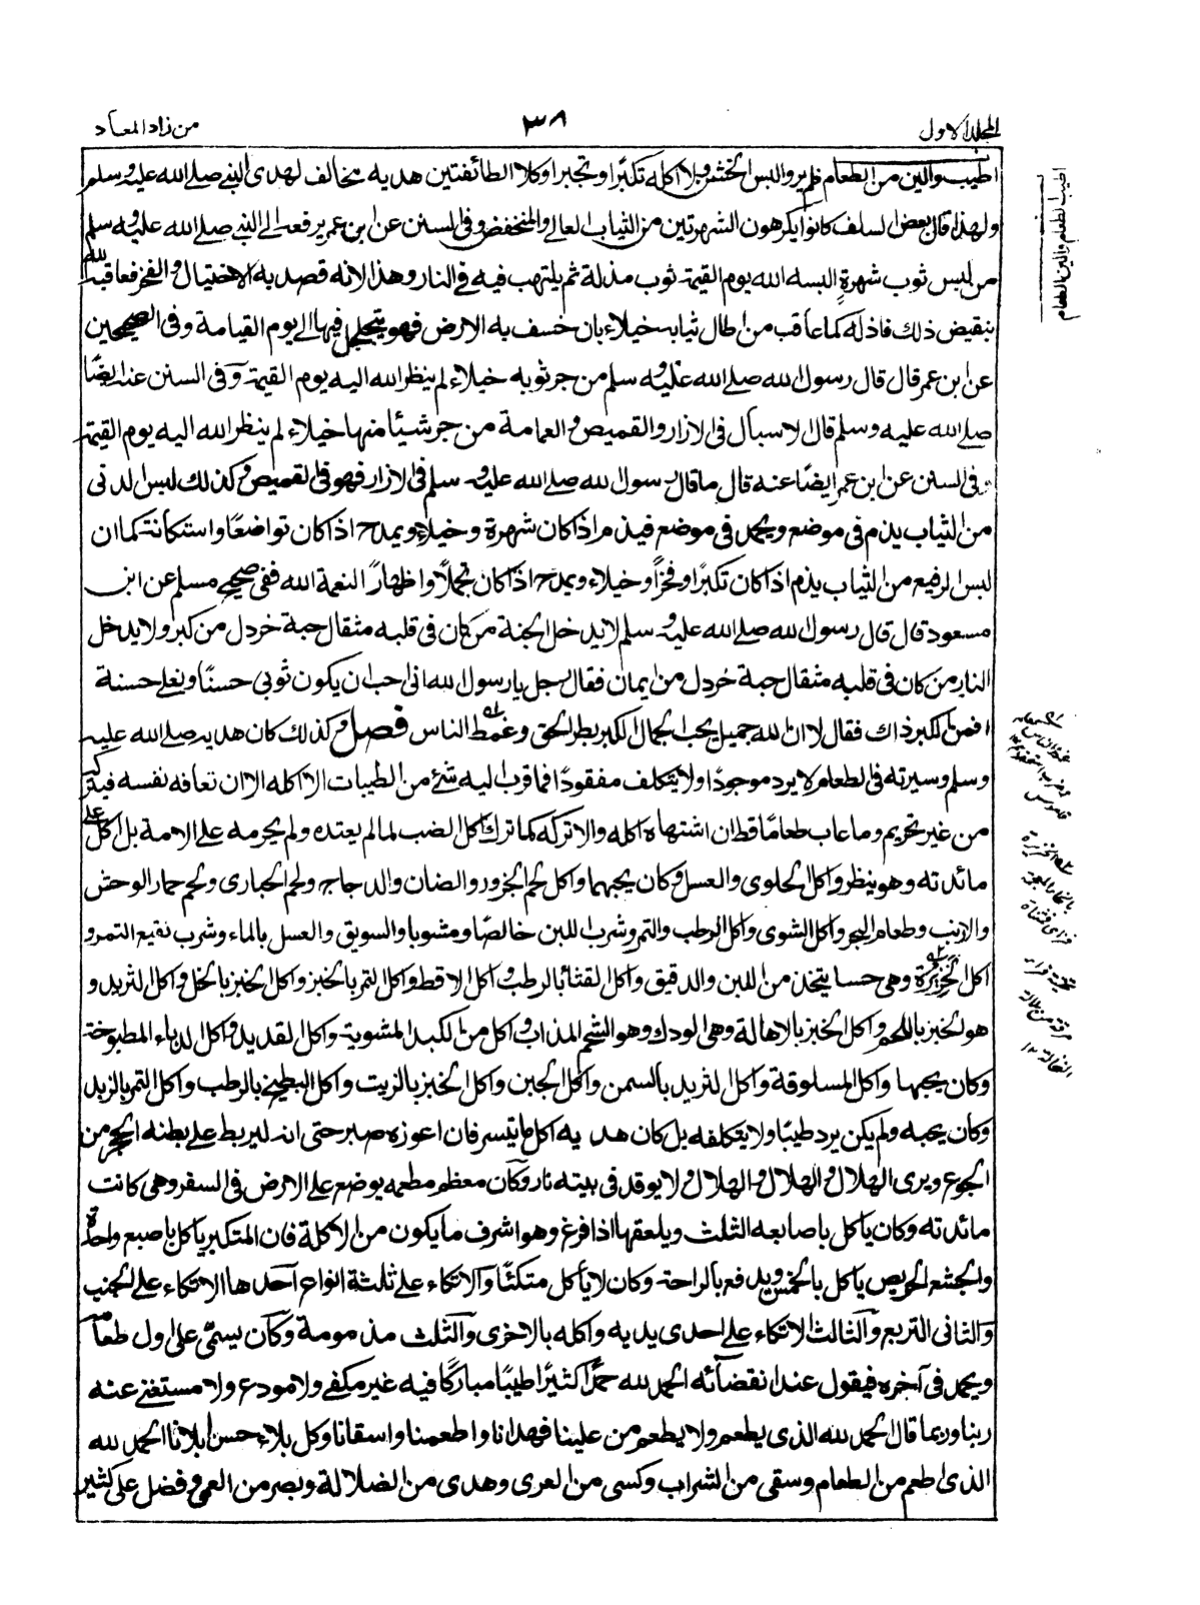 المجلد الاول
٣٨
من زاد المعاد
اطيب والين من الطعام فلم يروا اللبس الخشن ولا اكله تكبرًا وتجبرا وكلا الطائفتين هديه مخالف لهدى النبے صلے الله عليه وسلم
ولهذا قال بعض السلف كانوا يكرهون الشهرتين من الثياب العالے والمنخفض وفى السنن عن ابن عمر يرفعه الے النبے صلے الله عليه وسلم
من لبس ثوب شهرةٍ البسه الله يوم القيمة ثوب مذلة ثم يلتهب فيه فے النار وهذا لانه قصد به الاختيال والفخر فعاقبه الله
بنقيض ذلك فاذله كما عاقب من اطال ثيابه خيلاء بان خسف به الارض فهو يتجلجل فيها الے يوم القيامة وفى الصحيحين
عن ابن عمر قال قال رسول الله صلے الله عليه وسلم من جر ثوبه خيلاء لم ينظر الله اليه يوم القيمة وفى السنن عنه ايضًا
صلے الله عليه وسلم قال الاسبال فى الازار والقميص والعمامة من جر شيئًا منها خيلاء لم ينظر الله اليه يوم القيمة
وفى السنن عن ابن عمر ايضًا عنه قال ما قال رسول الله صلے الله عليه وسلم فى الازار فهو فى القميص وكذلك لبس الدنى
من الثياب يذم فى موضع ويحمد فى موضع فيذم اذا كان شهرة وخيلاء ويمدح اذا كان تواضعًا واستكانة كما ان
لبس الرفيع من الثياب يذم اذا كان تكبرًا وفخرًا وخيلاء ويمدح اذا كان تجملًا واظهارًا لنعمة الله ففى صحيح مسلم عن ابن
مسعود قال قال رسول الله صلے الله عليه وسلم لا يدخل الجنة من كان فى قلبه مثقال حبة خردل من كبر ولا يدخل
النار من كان فى قلبه مثقال حبة خردل من ايمان فقال رجل يا رسول الله انى احب ان يكون ثوبى حسنًا ونعلى حسنة
افمن الكبر ذاك فقال لا ان الله جميل يحب الجمال الكبر بطر الحق وغمط الناس فصل وكذلك كان هديه صلے الله عليه
وسلم وسيرته فى الطعام لا يرد موجودًا ولا يتكلف مفقودًا فما قرب اليه شئ من الطيبات الا اكله الا ان تعافه نفسه فيتركه
من غير تحريم وما عاب طعامًا قط ان اشتهاه اكله والا تركه كما ترك اكل الضب لما لم يعتده ولم يحرمه على الامة بل اكل على
مائدته وهو ينظر واكل الحلوى والعسل وكان يحبهما واكل لحم الجزور والضان والدجاج ولحم الحبارى ولحم حمار الوحش
والارنب وطعام البحر واكل الشوى واكل الرطب والتمر وشرب اللبن خالصًا ومشوبا والسويق والعسل بالماء وشرب نقيع التمر و
اكل الخزيرة وهى حسا يتخذ من اللبن والدقيق واكل القثا بالرطب واكل الاقط واكل التمر بالخبز واكل الخبز بالخل واكل الثريد و
هو الخبز باللحم واكل الخبز بالاهالة وهى الودك وهو الشحم المذاب واكل من الكبد المشوية واكل القديد واكل الدباء المطبوخة
وكان يحبها واكل المسلوقة واكل الثريد بالسمن واكل الجبن واكل الخبز بالزيت واكل البطيخ بالرطب واكل التمر بالزبد
وكان يحبه ولم يكن يرد طيبًا ولا يتكلفه بل كان هديه اكل ما تيسر فان اعوزه صبر حتى انه ليربط على بطنه الحجر من
الجوع ويرى الهلال والهلال والهلال ولا يوقد فى بيته نار وكان معظم مطعمه يوضع على الارض فى السفر وهى كانت
مائدته وكان ياكل باصابعه الثلث ويلعقها اذا فرغ وهو اشرف ما يكون من الاكلة فان المتكبر ياكل باصبع واحدة
والجشع الحريص ياكل بالخمس ويدفع بالراحة وكان لا يأكل متكئًا والاتكاء على ثلثة انواع احدها الاتكاء على الجنب
والثانى التربع والثالث الاتكاء على احدى يديه واكله بالاخرى والثلث مذمومة وكان يسمى على اول طعامه
ويحمد فى آخره فيقول عند انقضائه الحمد لله حمدًا كثيرًا طيبًا مباركًا فيه غير مكفے ولا مودع ولا مستغنے عنه
ربنا وربما قال الحمد لله الذى يطعم ولا يطعم من علينا فهدانا واطعمنا واسقانا وكل بلاء حسن ابلانا الحمد لله
الذى اطعم من الطعام وسقى من الشراب وكسى من العرى وهدى من الضلالة وبصر من العمى وفضل على كثير
اطيب الطعام والين الطعام